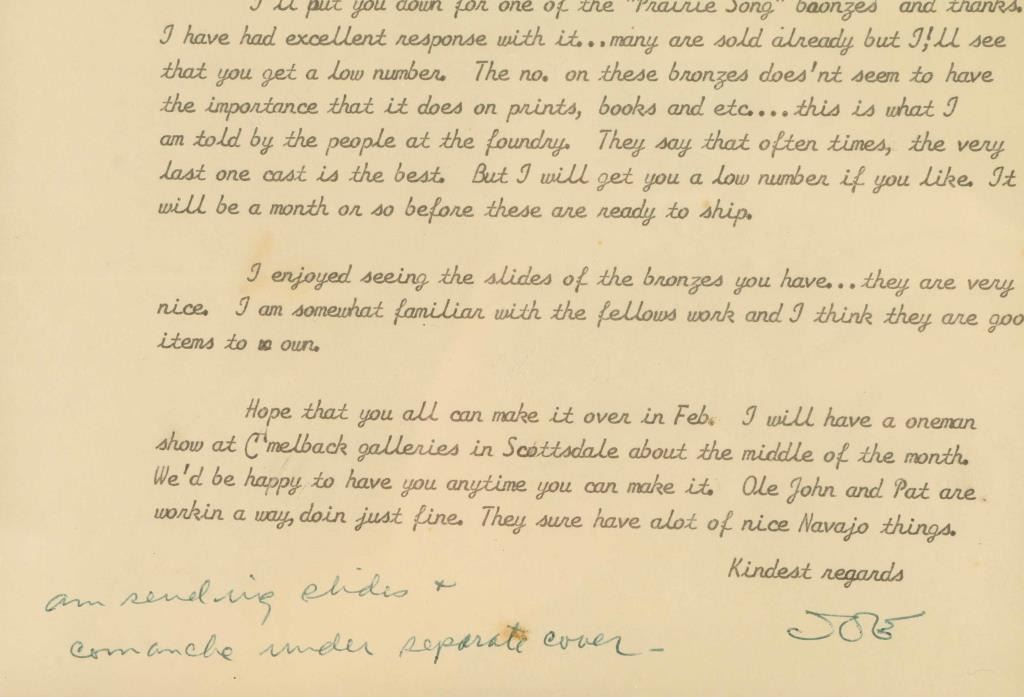 I'll put you down for one of the "Prairie Song" bronzes and thanks.
I have had excellent response with it...many are sold already but I'll see
that you get a low number. The no. on these bronzes does'nt seem to have
the importance that it does on prints, books and etc....this is what I
am told by the people at the foundry. They say that often times, the very
last one cast is the best. But I will get you a low number if you like. It
will be a month or so before these are ready to ship.
I enjoyed seeing the slides of the bronzes you have...they are very
nice. I am somewhat familiar with the fellows work and I think they are goo
items to own.
Hope that you all can make it over in Feb. I will have a oneman
show at C'melback galleries in Scottsdale about the middle of the month.
We'd be happy to have you anytime you can make it. Ole John and Pat are
workin a way, doin just fine. They sure have alot of nice Navajo things.
Kindest regards
JOE
am sending slides +
comanche under separate cover -